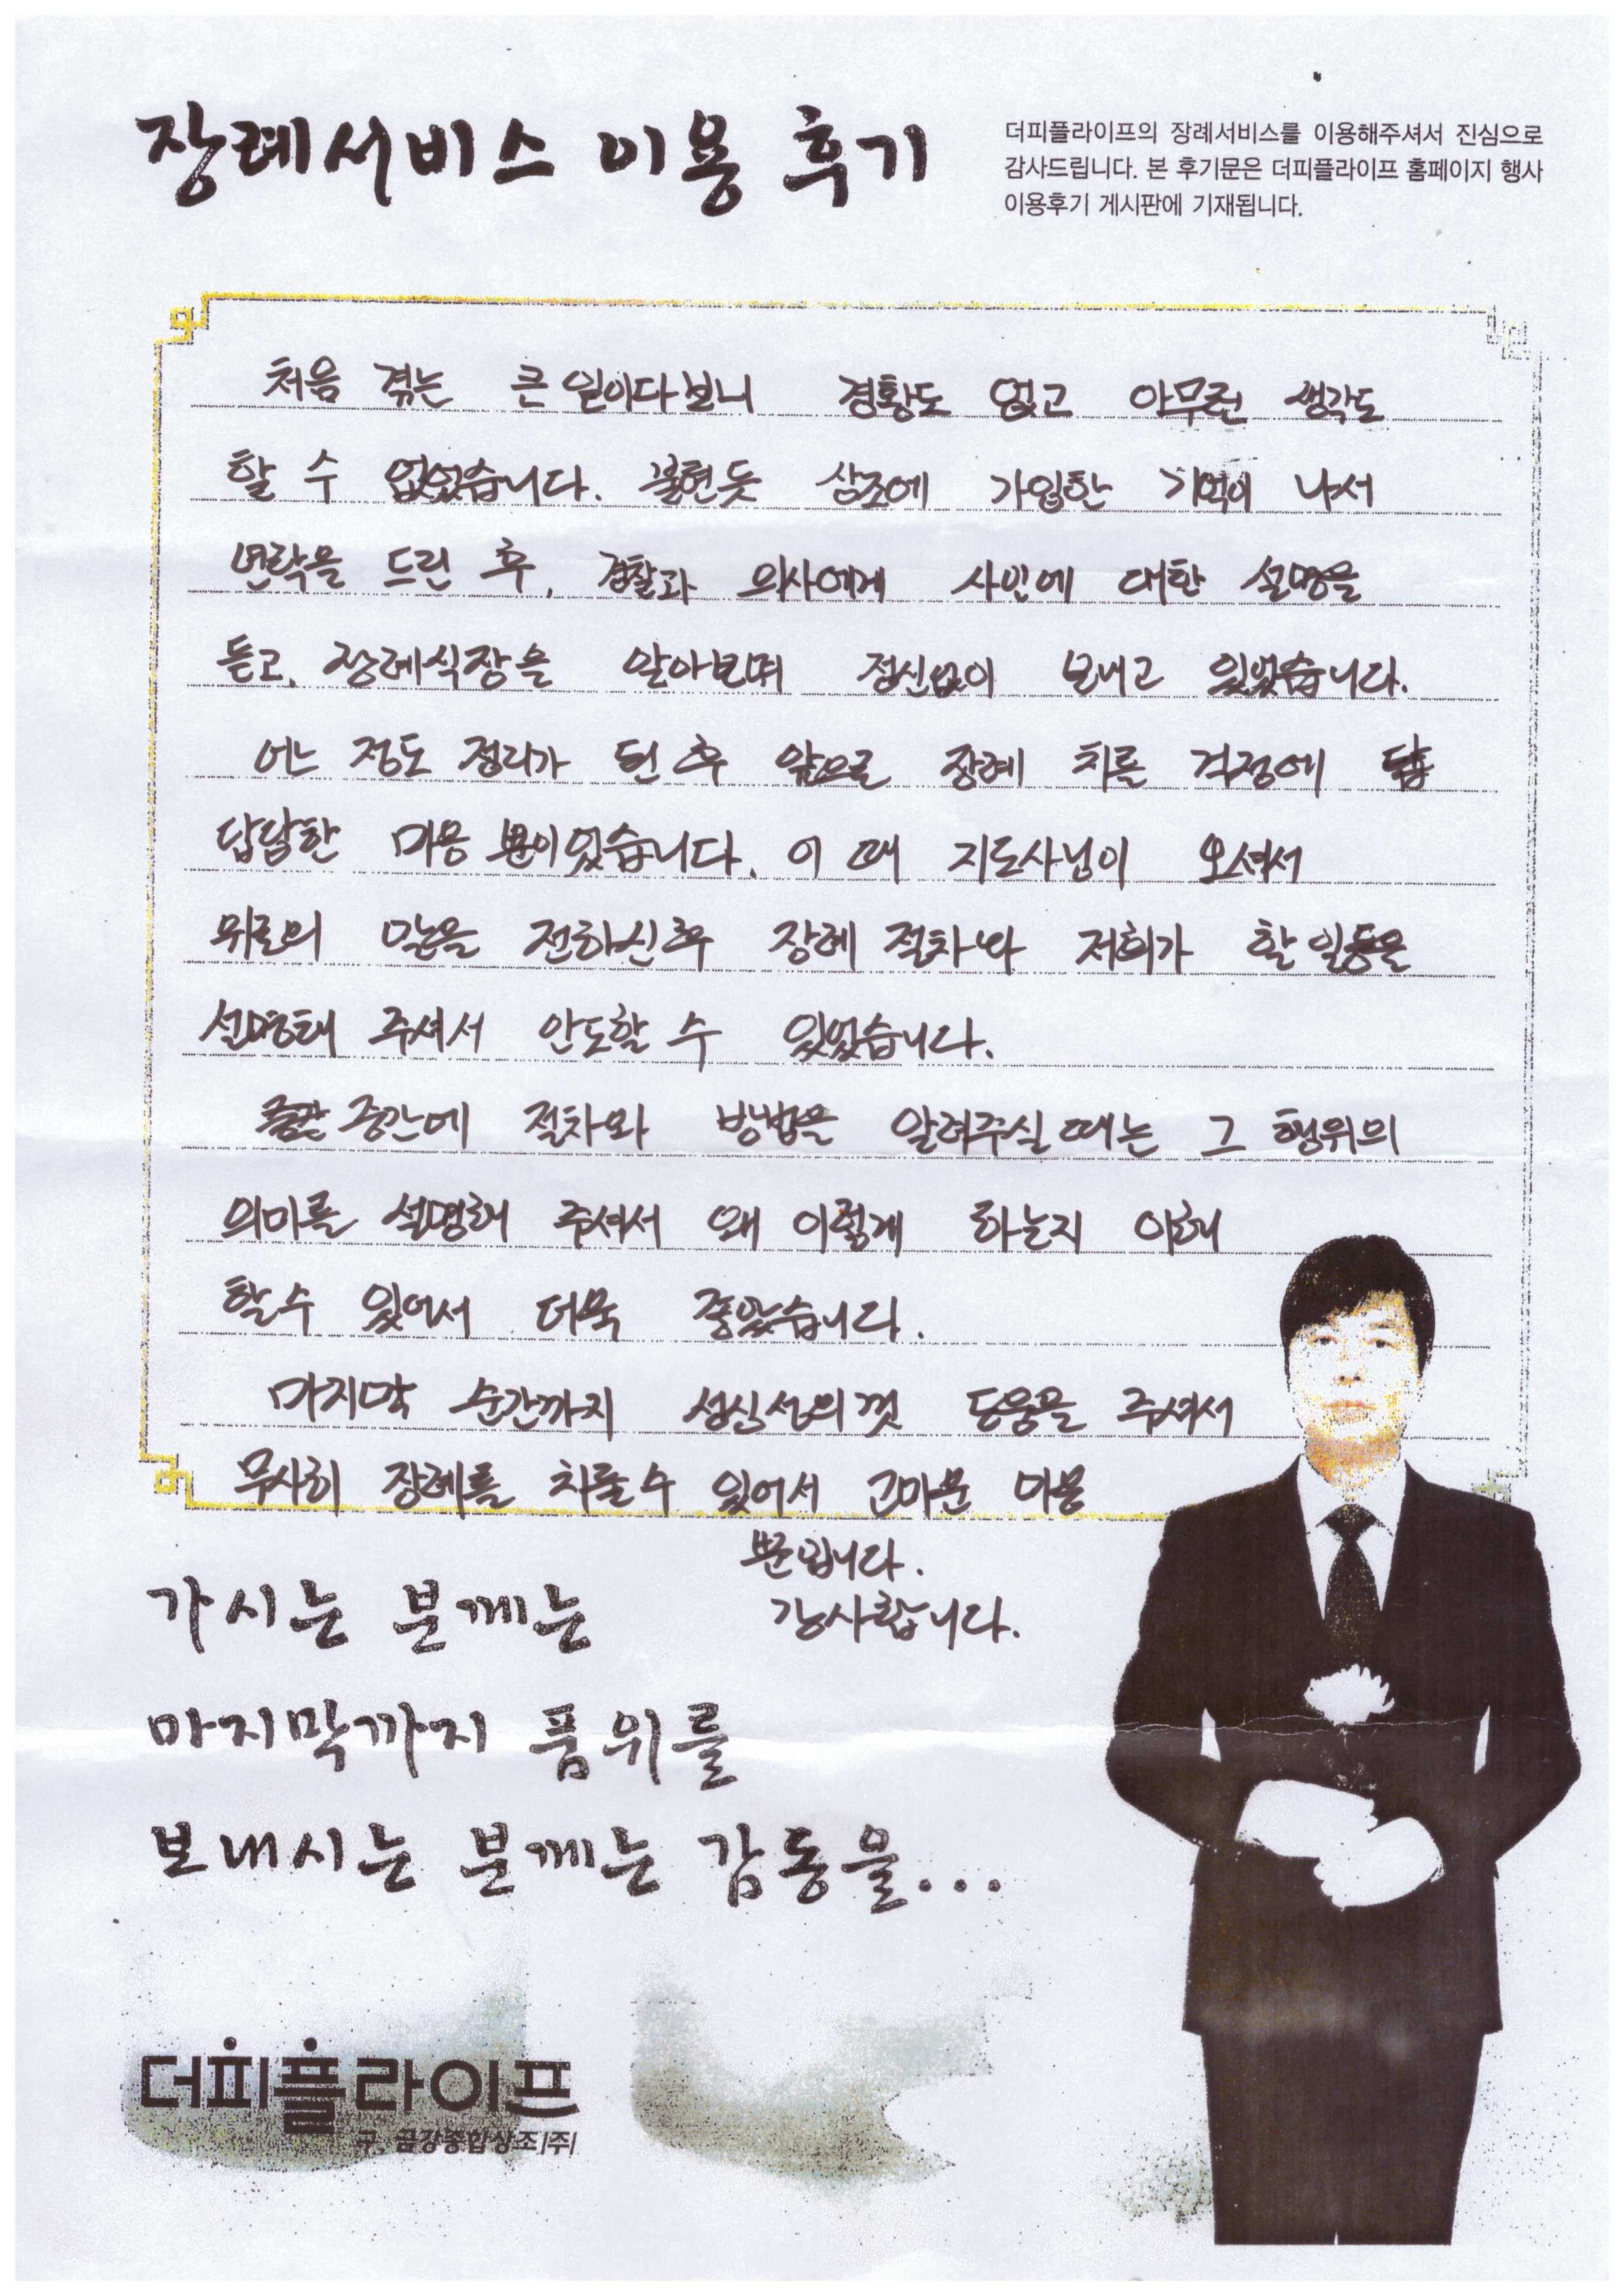 장례서비스 이용 후기
더피플라이프의 장례서비스를 이용해주셔서 진심으로
감사드립니다. 본 후기문은 더피플라이프 홈페이지 행사
이용후기 게시판에 기재됩니다.
처음 겪는 큰 일이다보니 경황도 없고 아무런 생각도
할 수 없었습니다. 불현듯 상조에 가입한 기억이 나서
연락을 드린 후, 경찰과 의사에게 사인에 대한 설명을
듣고, 장례식장을 알아보며 정신없이 보내고 있었습니다.
어느 정도 정리가 된 후 앞으로 장례 치를 걱정에
답답한 마음 뿐이었습니다. 이 때 지도사님이 오셔서
위로의 말을 전하신 후 장례 절차와 저희가 할 일등을
설명해 주셔서 안도할 수 있었습니다.
중간에 절차와 방법을 알려주실 때는 그 행위의
의미를 설명해 주셔서 왜 이렇게 하는지 이해
할 수 있어서 더욱 좋았습니다.
마지막 순간까지 성심성의껏 도움을 주셔서
무사히 장례를 치룰 수 있어서 고마운 마음
뿐입니다.
감사합니다.
가시는 분께는
마지막까지 품위를
보내시는 분께는 감동을...
더피플라이프
구. 금강종합상조|주|